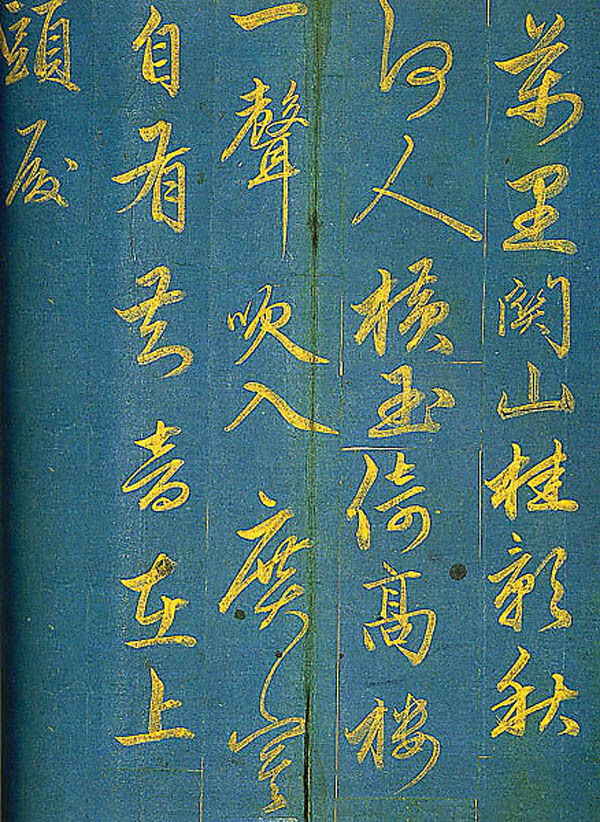 萬里関山桂影秋
何人橫玉倚髙樓
一聲吹入廣寒
自有知音在上
頭殿